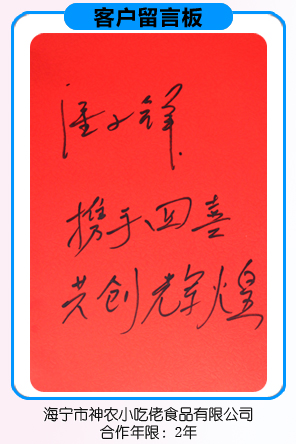 客户留言板
携手四喜
共创辉煌
海宁市神农小吃佬食品有限公司
合作年限：2年